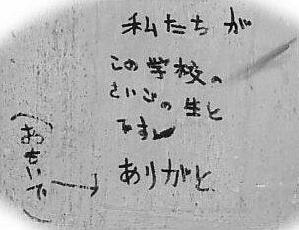 私たちが
この学校の
さいごの生と
です
ありがと
(おもいで)→